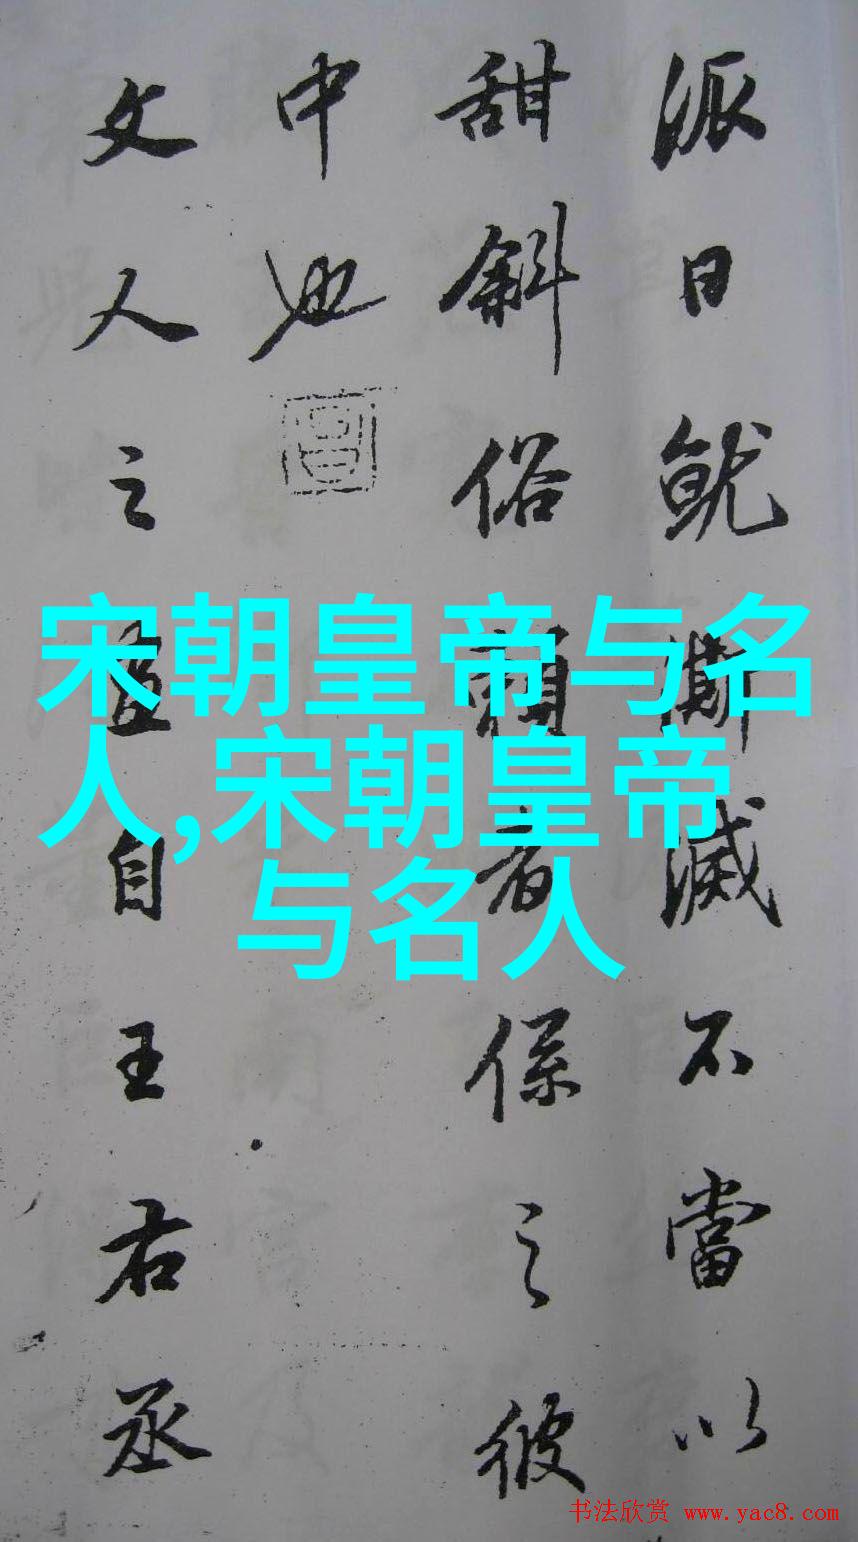 派日就澌滅不當以
甜斜俗賴者係之彼
中也
文人之畫自王右丞
宋朝皇帝与名
人,宋朝皇帝
与名人
书法欣赏 www.yac8.com